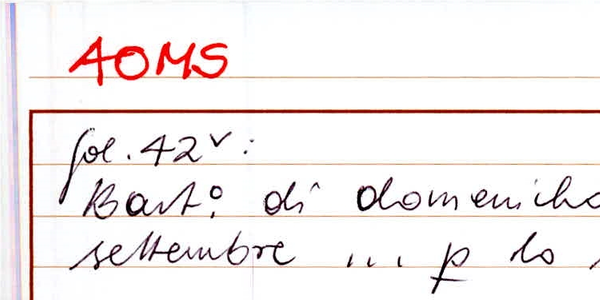 AOMS
fol. 42v:
Bart.o di domenicho
settembre ... p lo